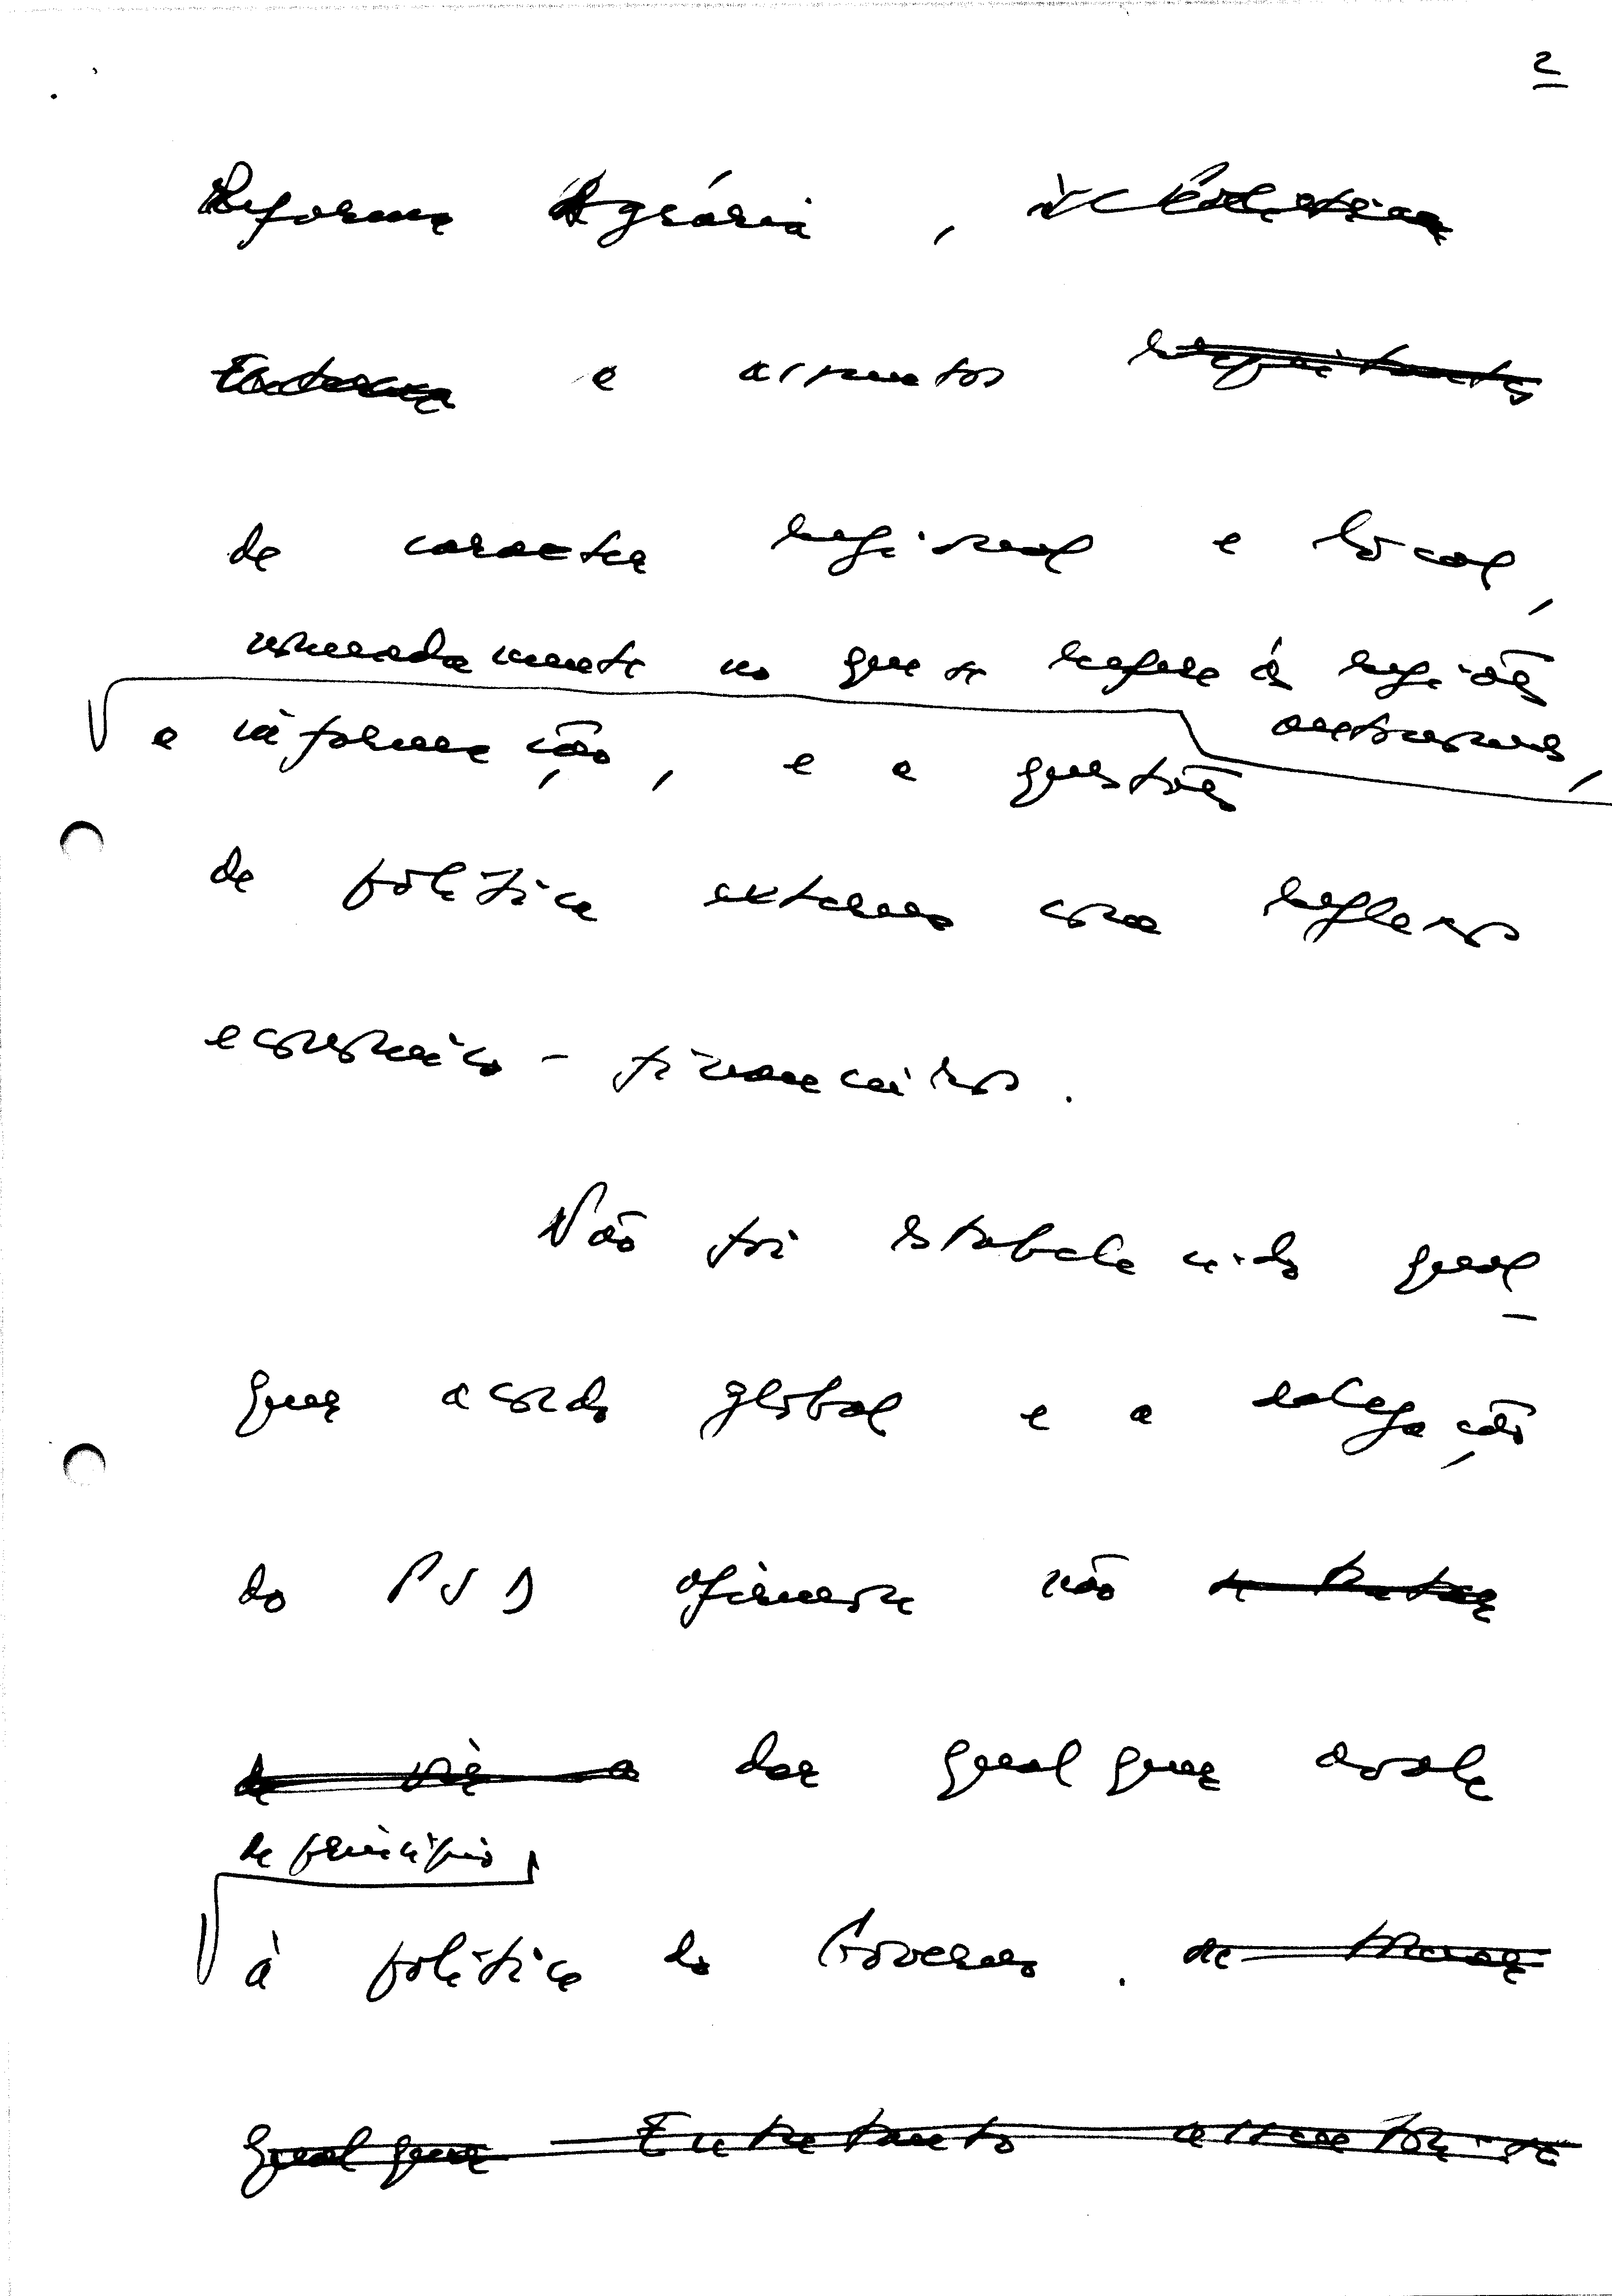 2
Reforma Agrária,
Externa e assuntos respeitantes
de caracter regional e local,
nomeadamente no que se refere às regiões
autónomas,
e informação, e a questões
de política externa com reflexos
económico-financeiros.
Não foi estabelecido qual-
quer acordo global e a delegação
do PSD afirmou não se tratar
dar qualquer aval
de princípio
à política do Governo.
qualquer Entretanto